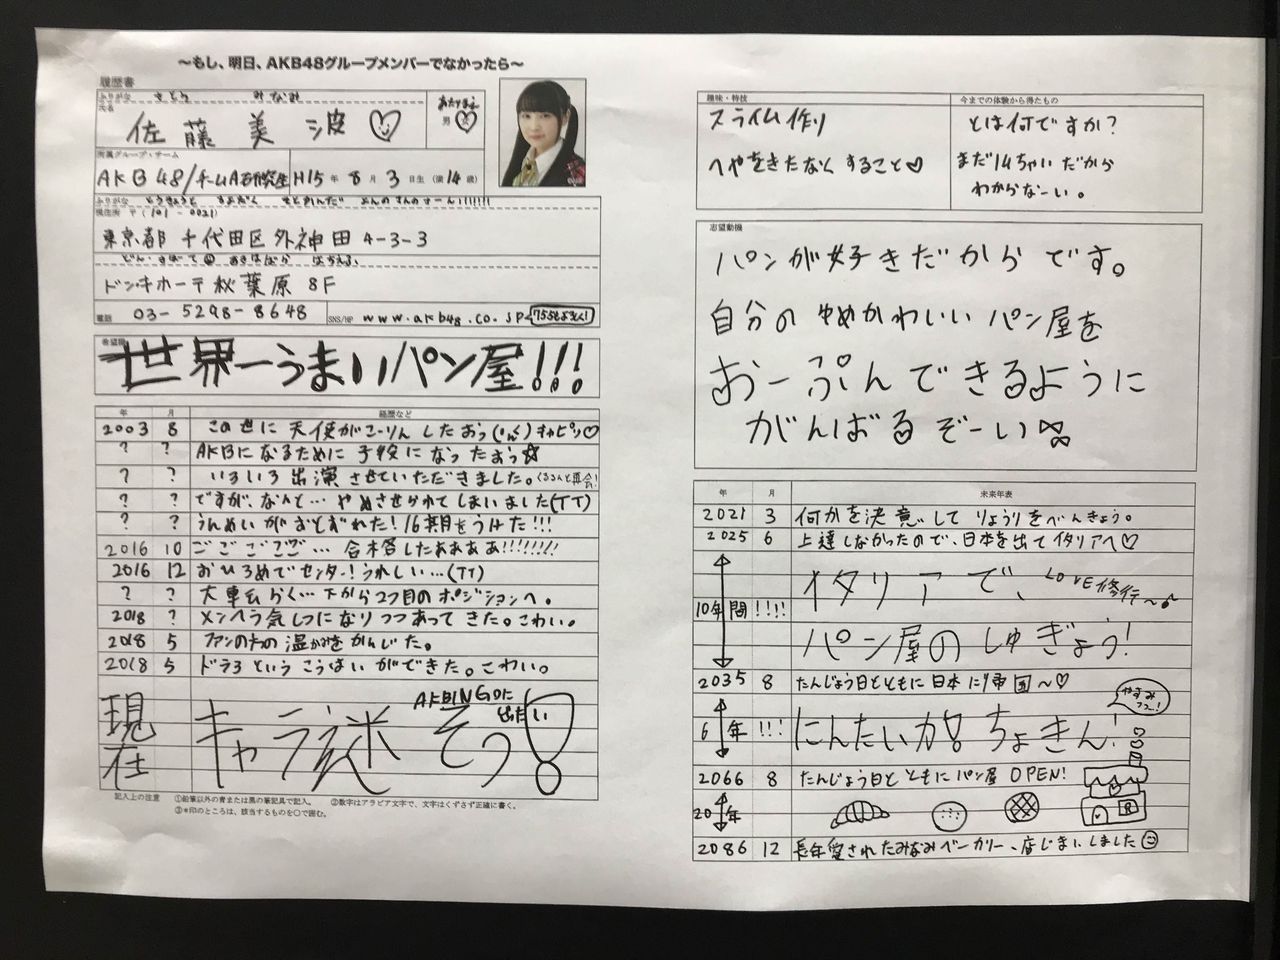 ～もし、明日、AKB48グループメンバーでなかったら～
履歴書
ふりがな さとう みなみ
氏名 佐藤 美波
あたりまえ
男 女
所属グループ・チーム
AKB48/チームA研究生
H15 年 8 月 3 日生 (満 14 歳)
ふりがな とうきょうと ちよだく そとかんだ よんのさんのさーん!!!!!!
現住所 〒(101-0021)
東京都 千代田区外神田 4-3-3
どん・きほーて あきはばら はちえふ
ドン・キホーテ秋葉原 8F
電話 03-5298-8648
SNS/HP www.akb48.co.jp
755もよろしく!
希望職
世界一うまいパン屋!!!
年 月 経歴など
2003 8 この世に 天使がこーりん したおっ キャピッ♡
? ? AKBになるために 子役に なったおっ☆
? ? いろいろ出演させていただきました。
? ? ですが、なんと… やめさせられてしまいました(TT)
? ? うんめいがおとずれた! 16期をうけた!!!
2016 10 ごごごごご… 合格したぁぁぁぁ!!!!!!!
2016 12 おひろめでセンター! うれしい…(TT)
? ? 大車らく… 下から2つ目のポジションへ。
2018 ? メンヘラ気しつになりつつあってきた。こわい。
2018 5 ファンの方の温かみをかんじた。
2018 5 ドラ3というこうはいができた。こわい。
現在
キャラ迷そっ!
AKBINGOに
出たい
記入上の注意 ①鉛筆以外の青または黒の筆記具で記入。 ②数字はアラビア文字で、文字はくずさず正確に書く。
③*印のところは、該当するものを○で囲む。
趣味・特技
スライム作り
へやをきたなくすること♡
今までの体験から得たもの
とは何ですか?
まだ14ちゃいだから
わからなーい。
志望動機
パンが好きだからです。
自分のゆめかわいいパン屋を
おーぷんできるように
がんばるぞーい
年 月 未来年表
2021 3 何かを決意してりょうりをべんきょう。
2025 6 上達しなかったので、日本を出てイタリアへ♡
10年間!!!!
イタリアで、
LOVE修行~♪
パン屋のしゅぎょう!
2035 8 たんじょう日とともに日本に帰国~♡
6年!!!
にんたい力! ちょきん!
2066 8 たんじょう日とともにパン屋OPEN!
20年
2086 12 長年愛されたみなみベーカリー、店じまいしました